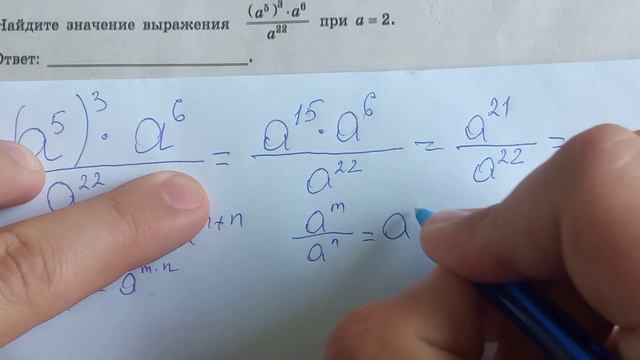 Найдите значение выражения (a⁵)³ · a⁶ / a²² при a = 2.
Ответ: ____________.
(a⁵)³ · a⁶ / a²² = a¹⁵ · a⁶ / a²² = a²¹ / a²² =
aᵐ / aⁿ = a
aᵐ·ⁿ